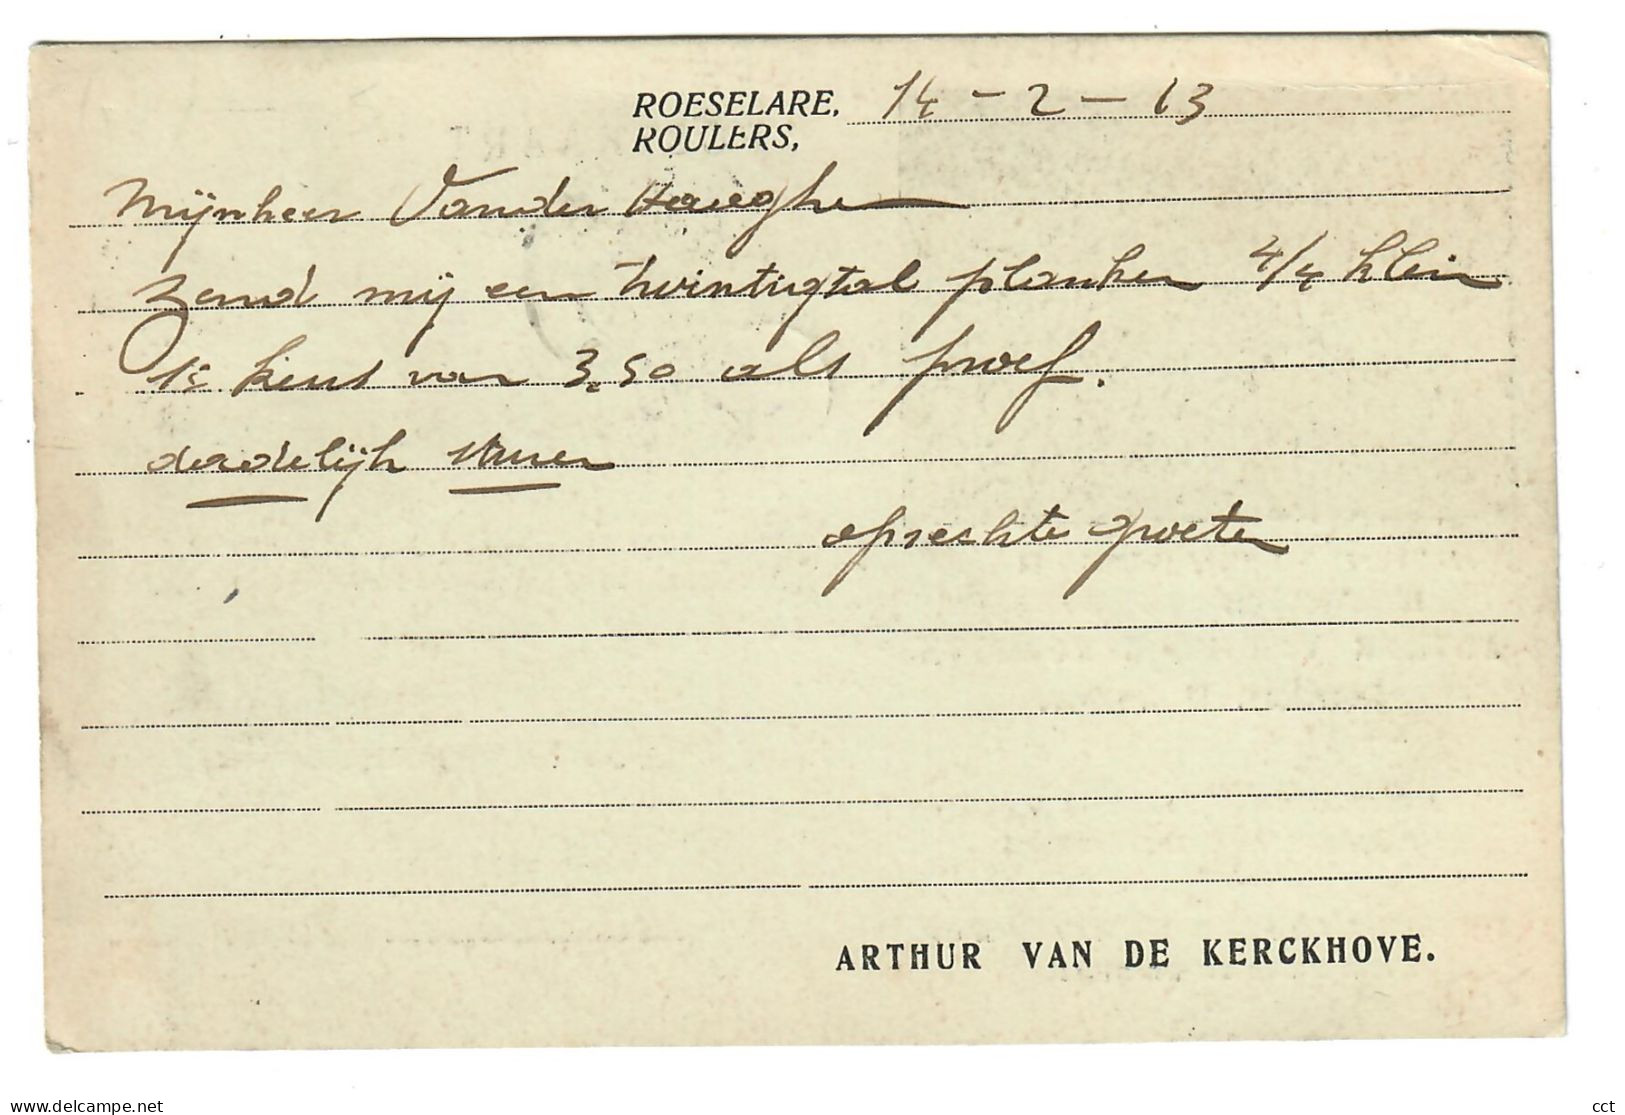 ROESELARE, 14 - 2 - 13
ROULERS,
Mijnheer Vander Haeeghe
Zend mij een twintigtal planken 4/4 klein
1e keus van 3,50 als proef.
dadelijk sturen
oprechte groeten
ARTHUR VAN DE KERCKHOVE.
www.delcampe.net
cct